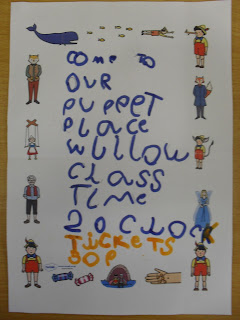 come to
OUR
PUPPET
PLACE
Willow
Class
Time
2 O CLOCK
TICKETS
50P